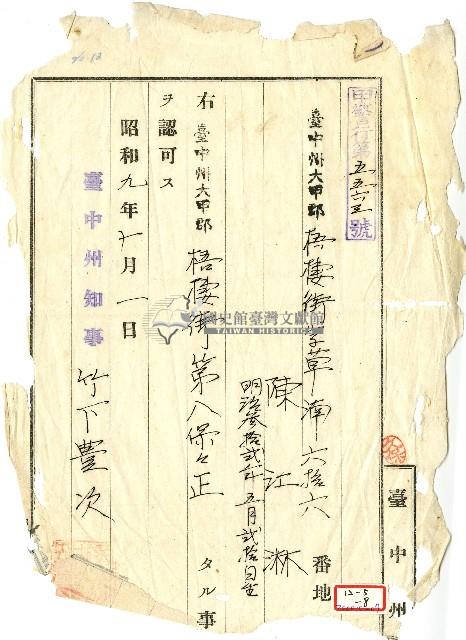 甲警兵行第五五六三號
臺中州大甲郡梧棲街字草湳六拾六番地
陳江淋
明治叁拾貳年五月貳拾日生
右臺中州大甲郡梧棲街第八保保正タル事
ヲ認可ス
昭和九年十月一日
臺中州知事 竹下豐次
臺中州
國史館臺灣文獻館
TAIWAN HISTORICA
12-5
-8